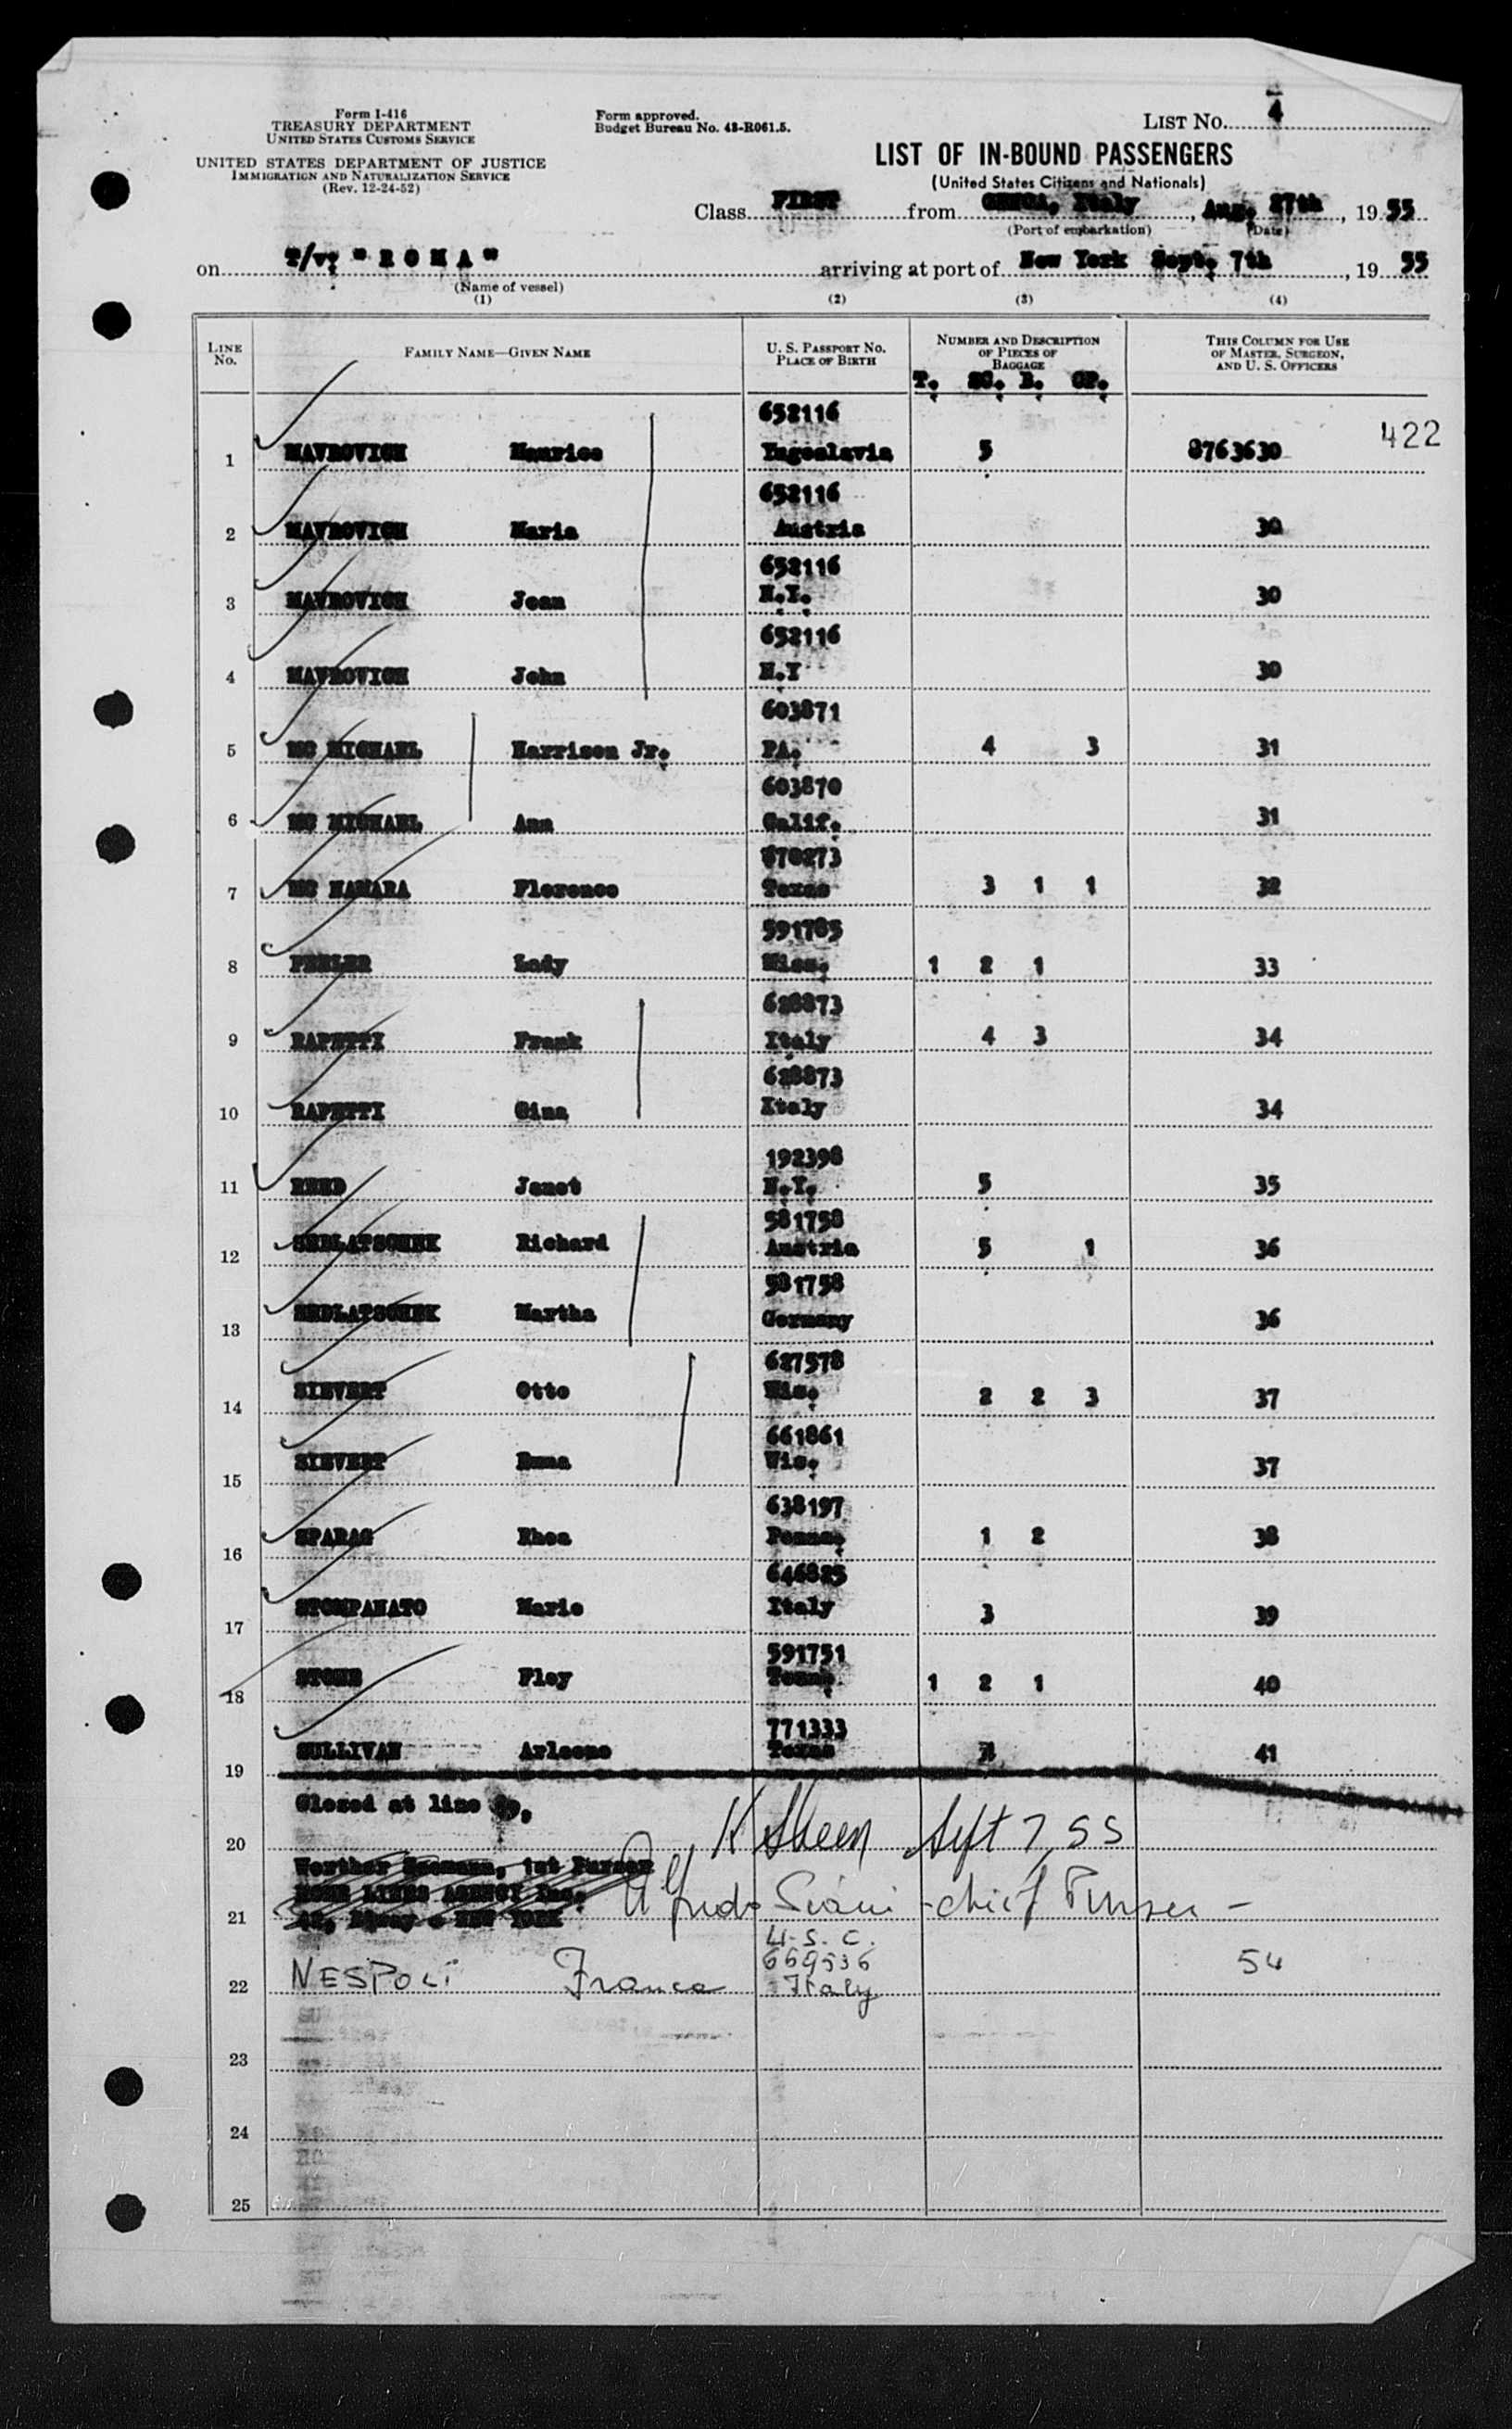 Form I-416
TREASURY DEPARTMENT
UNITED STATES CUSTOMS SERVICE
UNITED STATES DEPARTMENT OF JUSTICE
IMMIGRATION AND NATURALIZATION SERVICE
(Rev. 12-24-52)
Form approved.
Budget Bureau No. 43-R061.5.
LIST NO. 4
LIST OF IN-BOUND PASSENGERS
(United States Citizens and Nationals)
Class FIRST from GENOA, Italy, Aug. 27th, 1955
(Port of embarkation) (Date)
on T/v: " R O M A " arriving at port of New York Sept. 7th, 1955
(Name of vessel)
(1) (2) (3) (4)
LINE NO. FAMILY NAME—GIVEN NAME U. S. PASSPORT NO. PLACE OF BIRTH NUMBER AND DESCRIPTION OF PIECES OF BAGGAGE THIS COLUMN FOR USE OF MASTER, SURGEON, AND U. S. OFFICERS
T. SC. B. GP.
652116
1 MAVROVICH Maurice Yugoslavia 5 8763630 422
652116
2 MAVROVICH Maria Austria 30
652116
3 MAVROVICH Jean N.Y. 30
652116
4 MAVROVICH John N.Y 30
603871
5 MC MICHAEL Harrison Jr. PA. 4 3 31
603870
6 MC MICHAEL Ann Calif. 31
870273
7 MC NAMARA Florence Texas 3 1 1 32
591785
8 Lady 1 2 1 33
628873
9 RAPETTI Frank Italy 4 3 34
628873
10 RAPETTI Gina Italy 34
192398
11 REED Janet N.Y. 5 35
581758
12 SEDLATSCHEK Richard Austria 5 1 36
581758
13 SEDLATSCHEK Martha Germany 36
627578
14 SIEVERT Otto Wis. 2 2 3 37
661861
15 SIEVERT Wis. 37
638197
16 SPARAG Rhea Penna. 1 2 38
646825
17 STOMPANATO Marie Italy 3 39
591751
18 STONE Floy 1 2 1 40
771333
19 SULLIVAN Arleene Texas 41
Closed at line
20 Sept 7, 55
1st Purser
HOME LINES AGENCY Inc.
42, Bdway - NEW YORK
21 Alfredo Siani - chief Purser -
U.S.C.
669536
22 NESPOLI Franca Italy 54
23
24
25